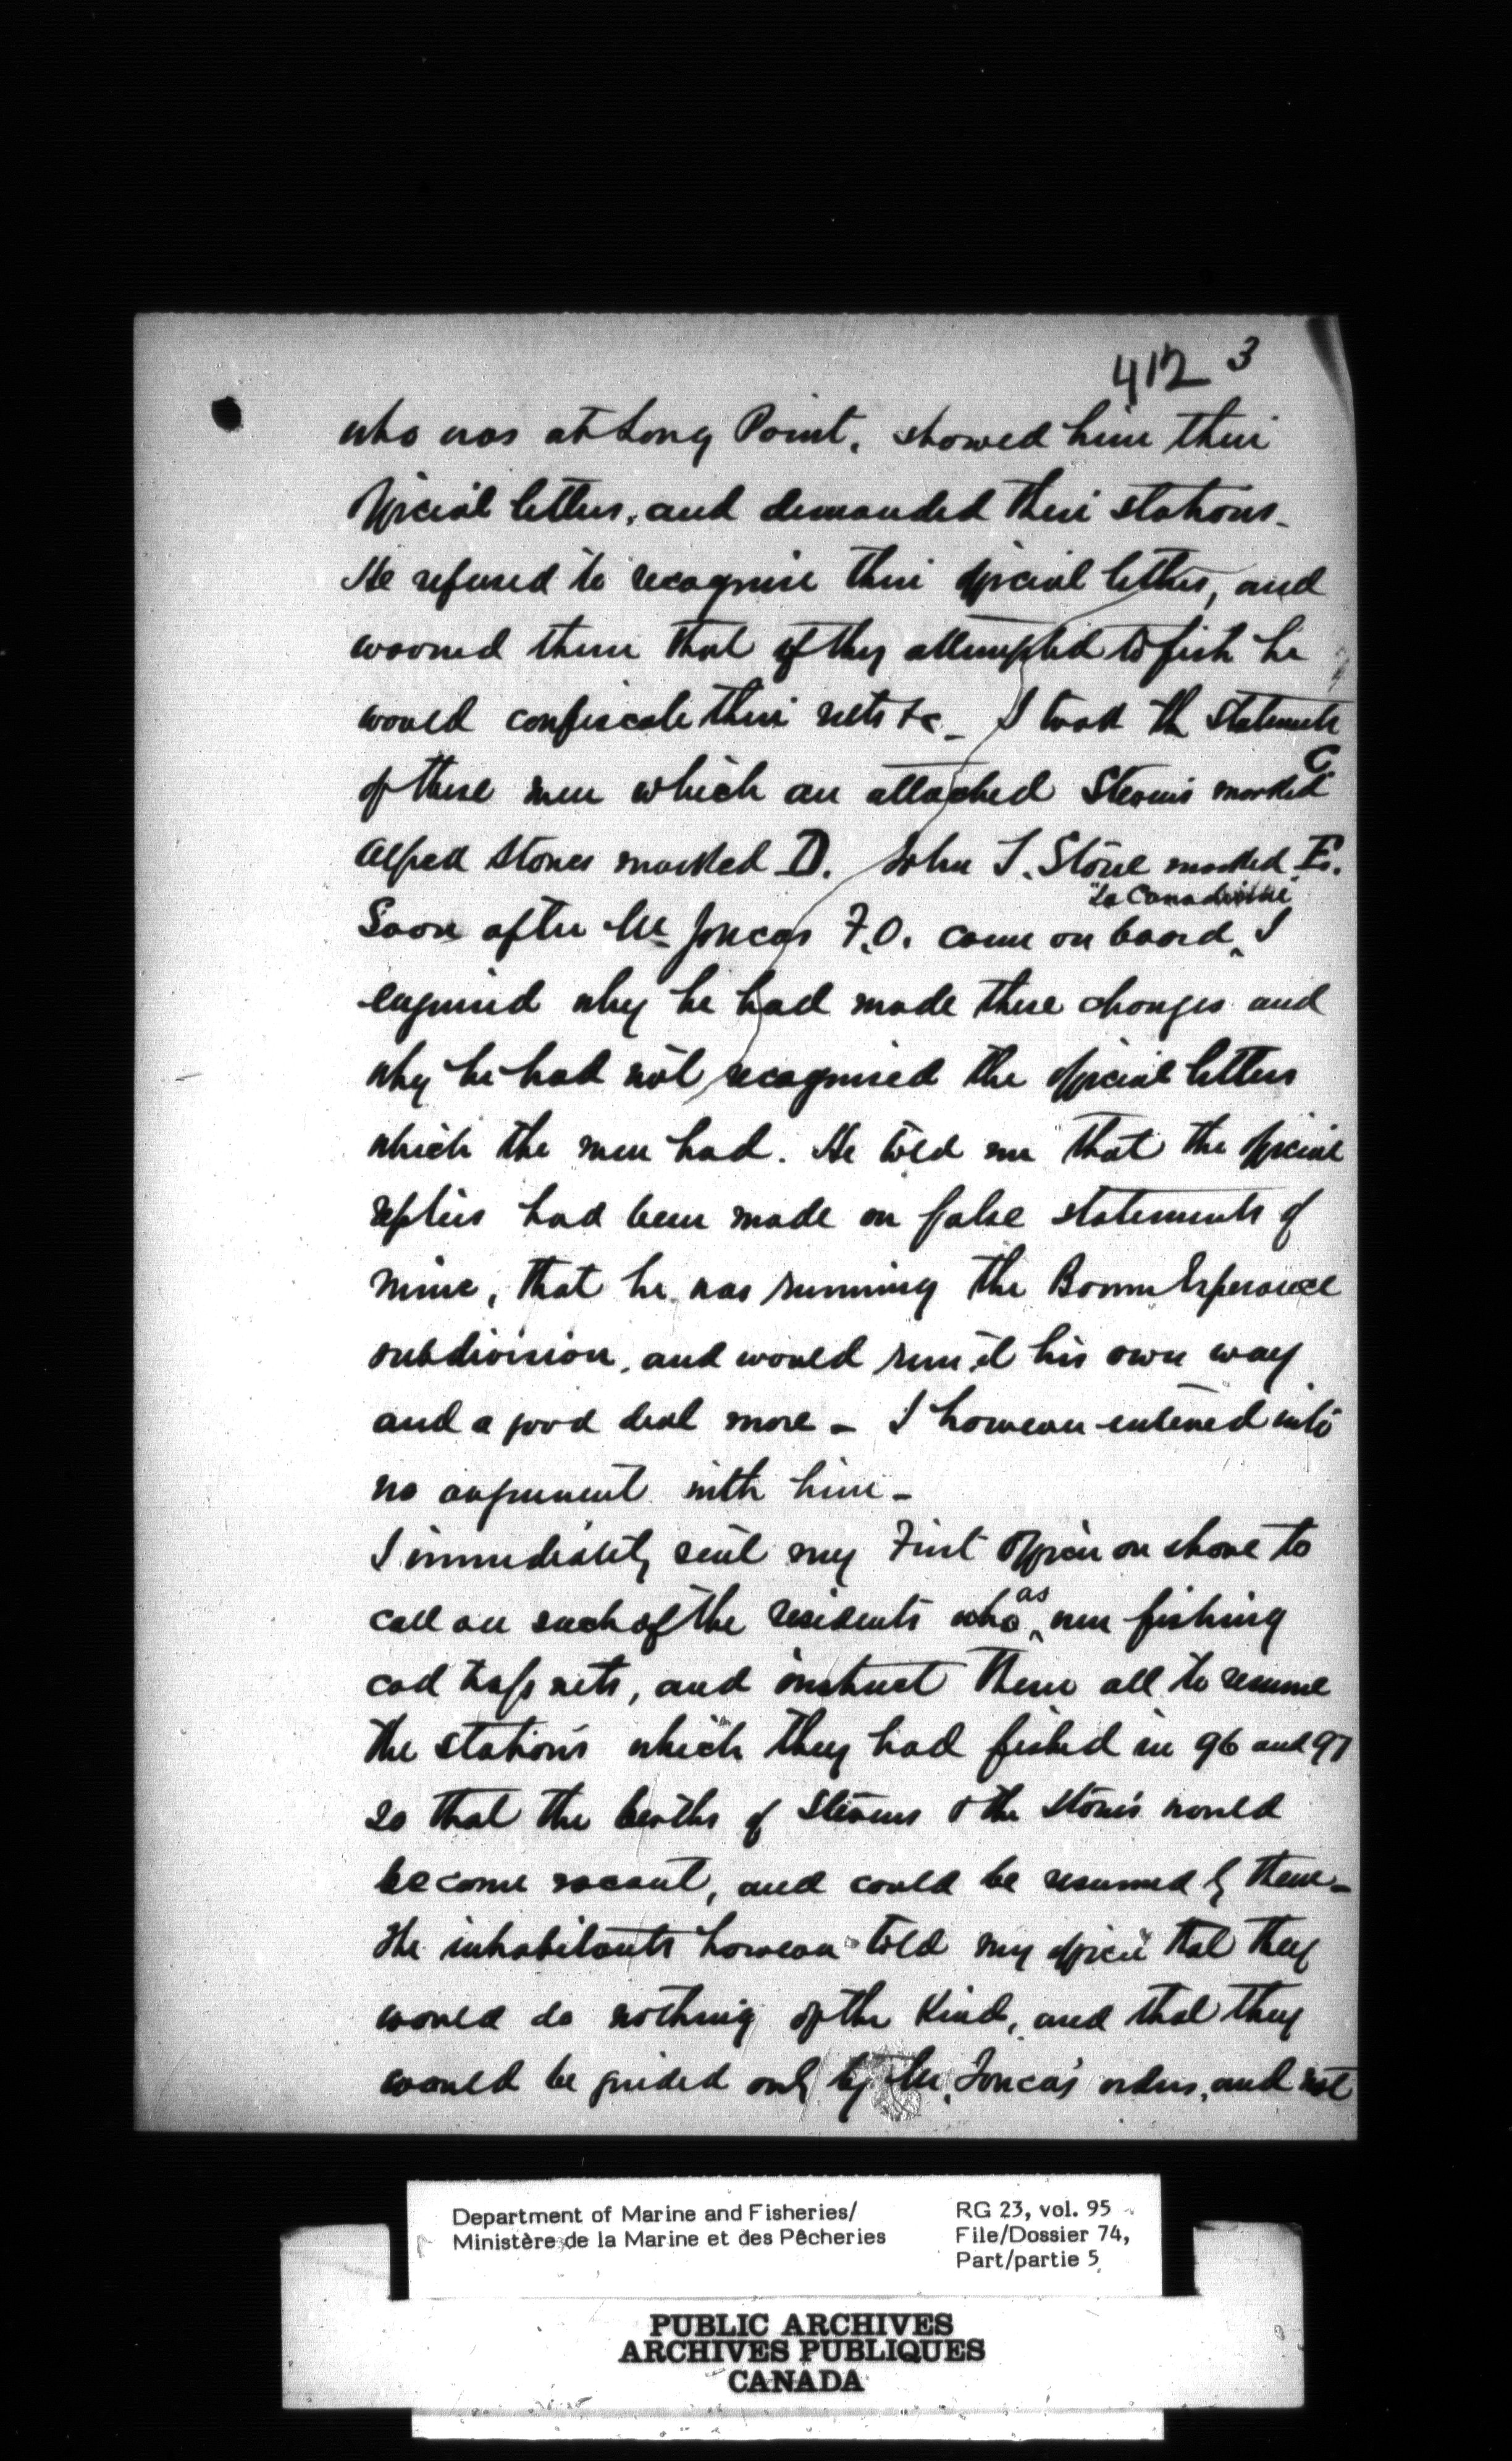 412 3
who was at Long Point, showed him their
official letters, and demanded their stations -
He refused to recognise their official letters, and
warned them that if they attempted to fish he
would confiscate their nets &c - I took the statements
of these men which are attached Stevens marked C.
Alfred Stones marked D. John T. Stone marked E.
"La Canadienne"
Soon after Mr Joncas F.O. came on board, I
enquired why he had made these changes and
why he had not recognised the official letters
which the men had. He told me that the official
replies had been made on false statements of
mine, that he was running the Bonne Esperance
subdivision, and would run it his own way
and a good deal more - I however entered into
no argument with him -
I immediately sent my First Officer on shore to
call on such of the residents who as were fishing
cod trap nets, and instruct them all to resume
the stations which they had fished in 96 and 97
so that the berths of Stevens & the Stones would
become vacant, and could be resumed by them -
The inhabitants however told my officer that they
would do nothing of the kind, and that they
would be guided only by Mr. Joncas' orders, and not
Department of Marine and Fisheries/
Ministère de la Marine et des Pêcheries
RG 23, vol. 95
File/Dossier 74,
Part/partie 5
PUBLIC ARCHIVES
ARCHIVES PUBLIQUES
CANADA